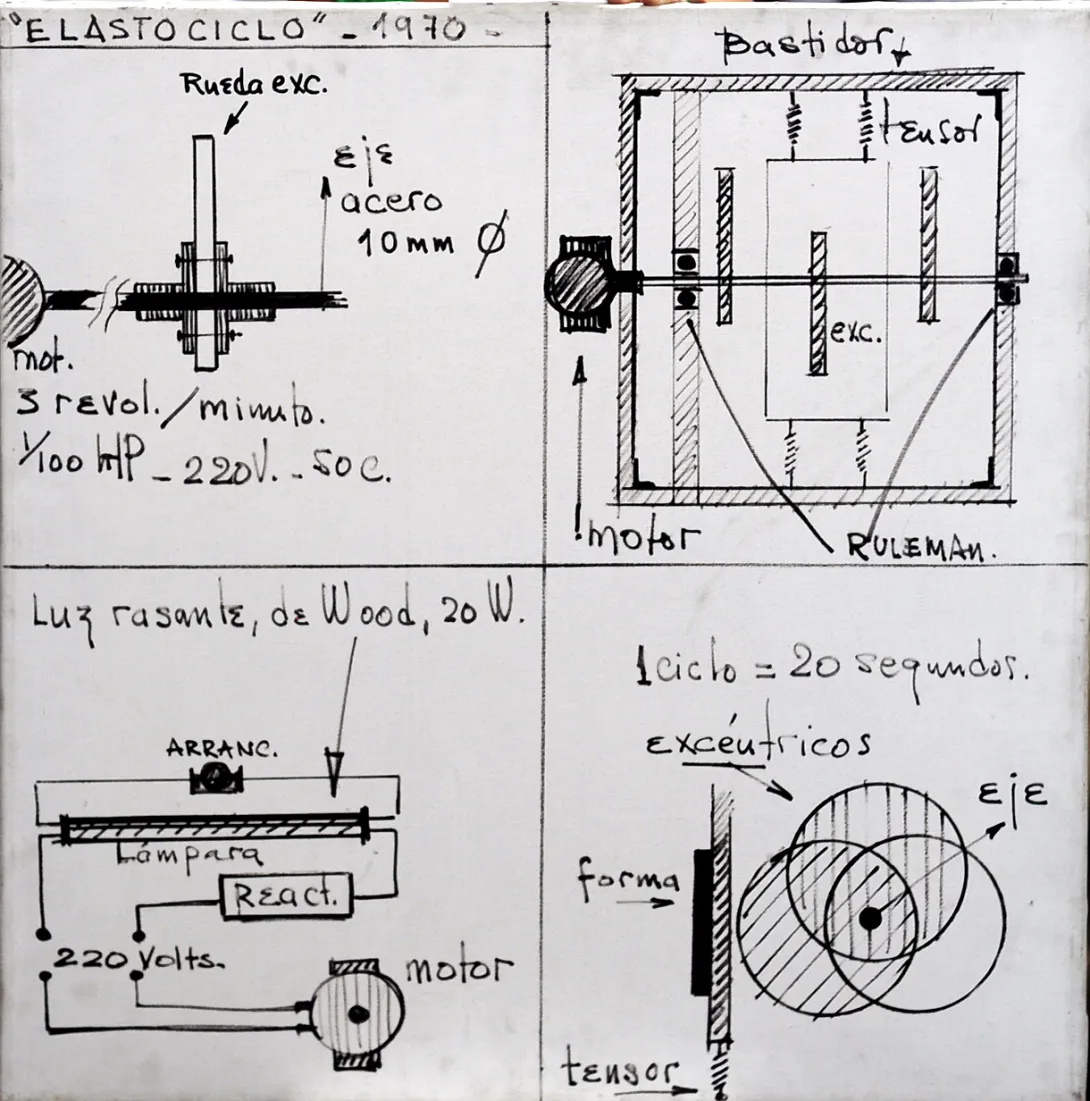 "ELASTOCICLO" - 1970 -
Rueda exc.
eje
acero
10 mm Ø
mot.
3 revol./minuto.
1/100 HP - 220V. - 50 c.
Bastidor
tensor
exc.
motor
RULEMAN.
Luz rasante, de Wood, 20 W.
ARRANC.
Lámpara
React.
220 Volts.
motor
1 ciclo = 20 segundos.
excéntricos
eje
forma
tensor